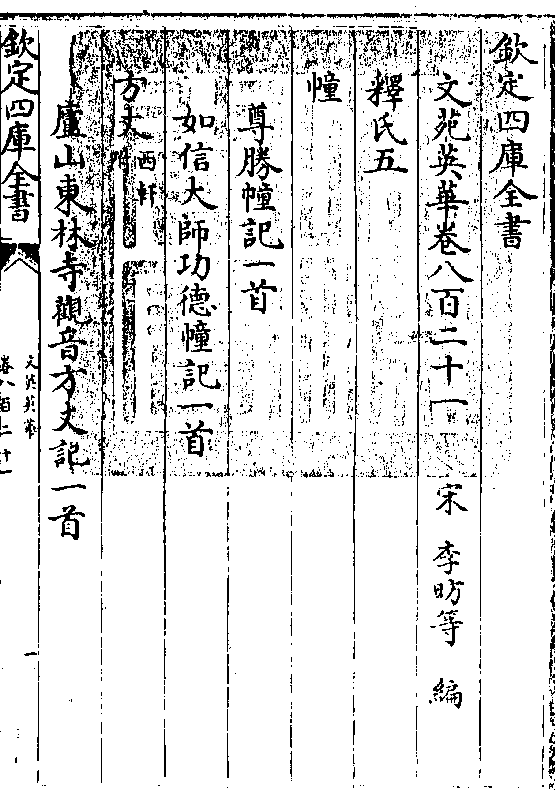 欽定四庫全書
文苑英華卷八百二十一 宋 李昉等 編
釋氏五
幢
尊勝幢記一首
如信大師功德幢記一首
方丈 西軒 附
廬山東林寺觀音方丈記一首
欽定四庫全書
文苑英華
卷八百二十一
一